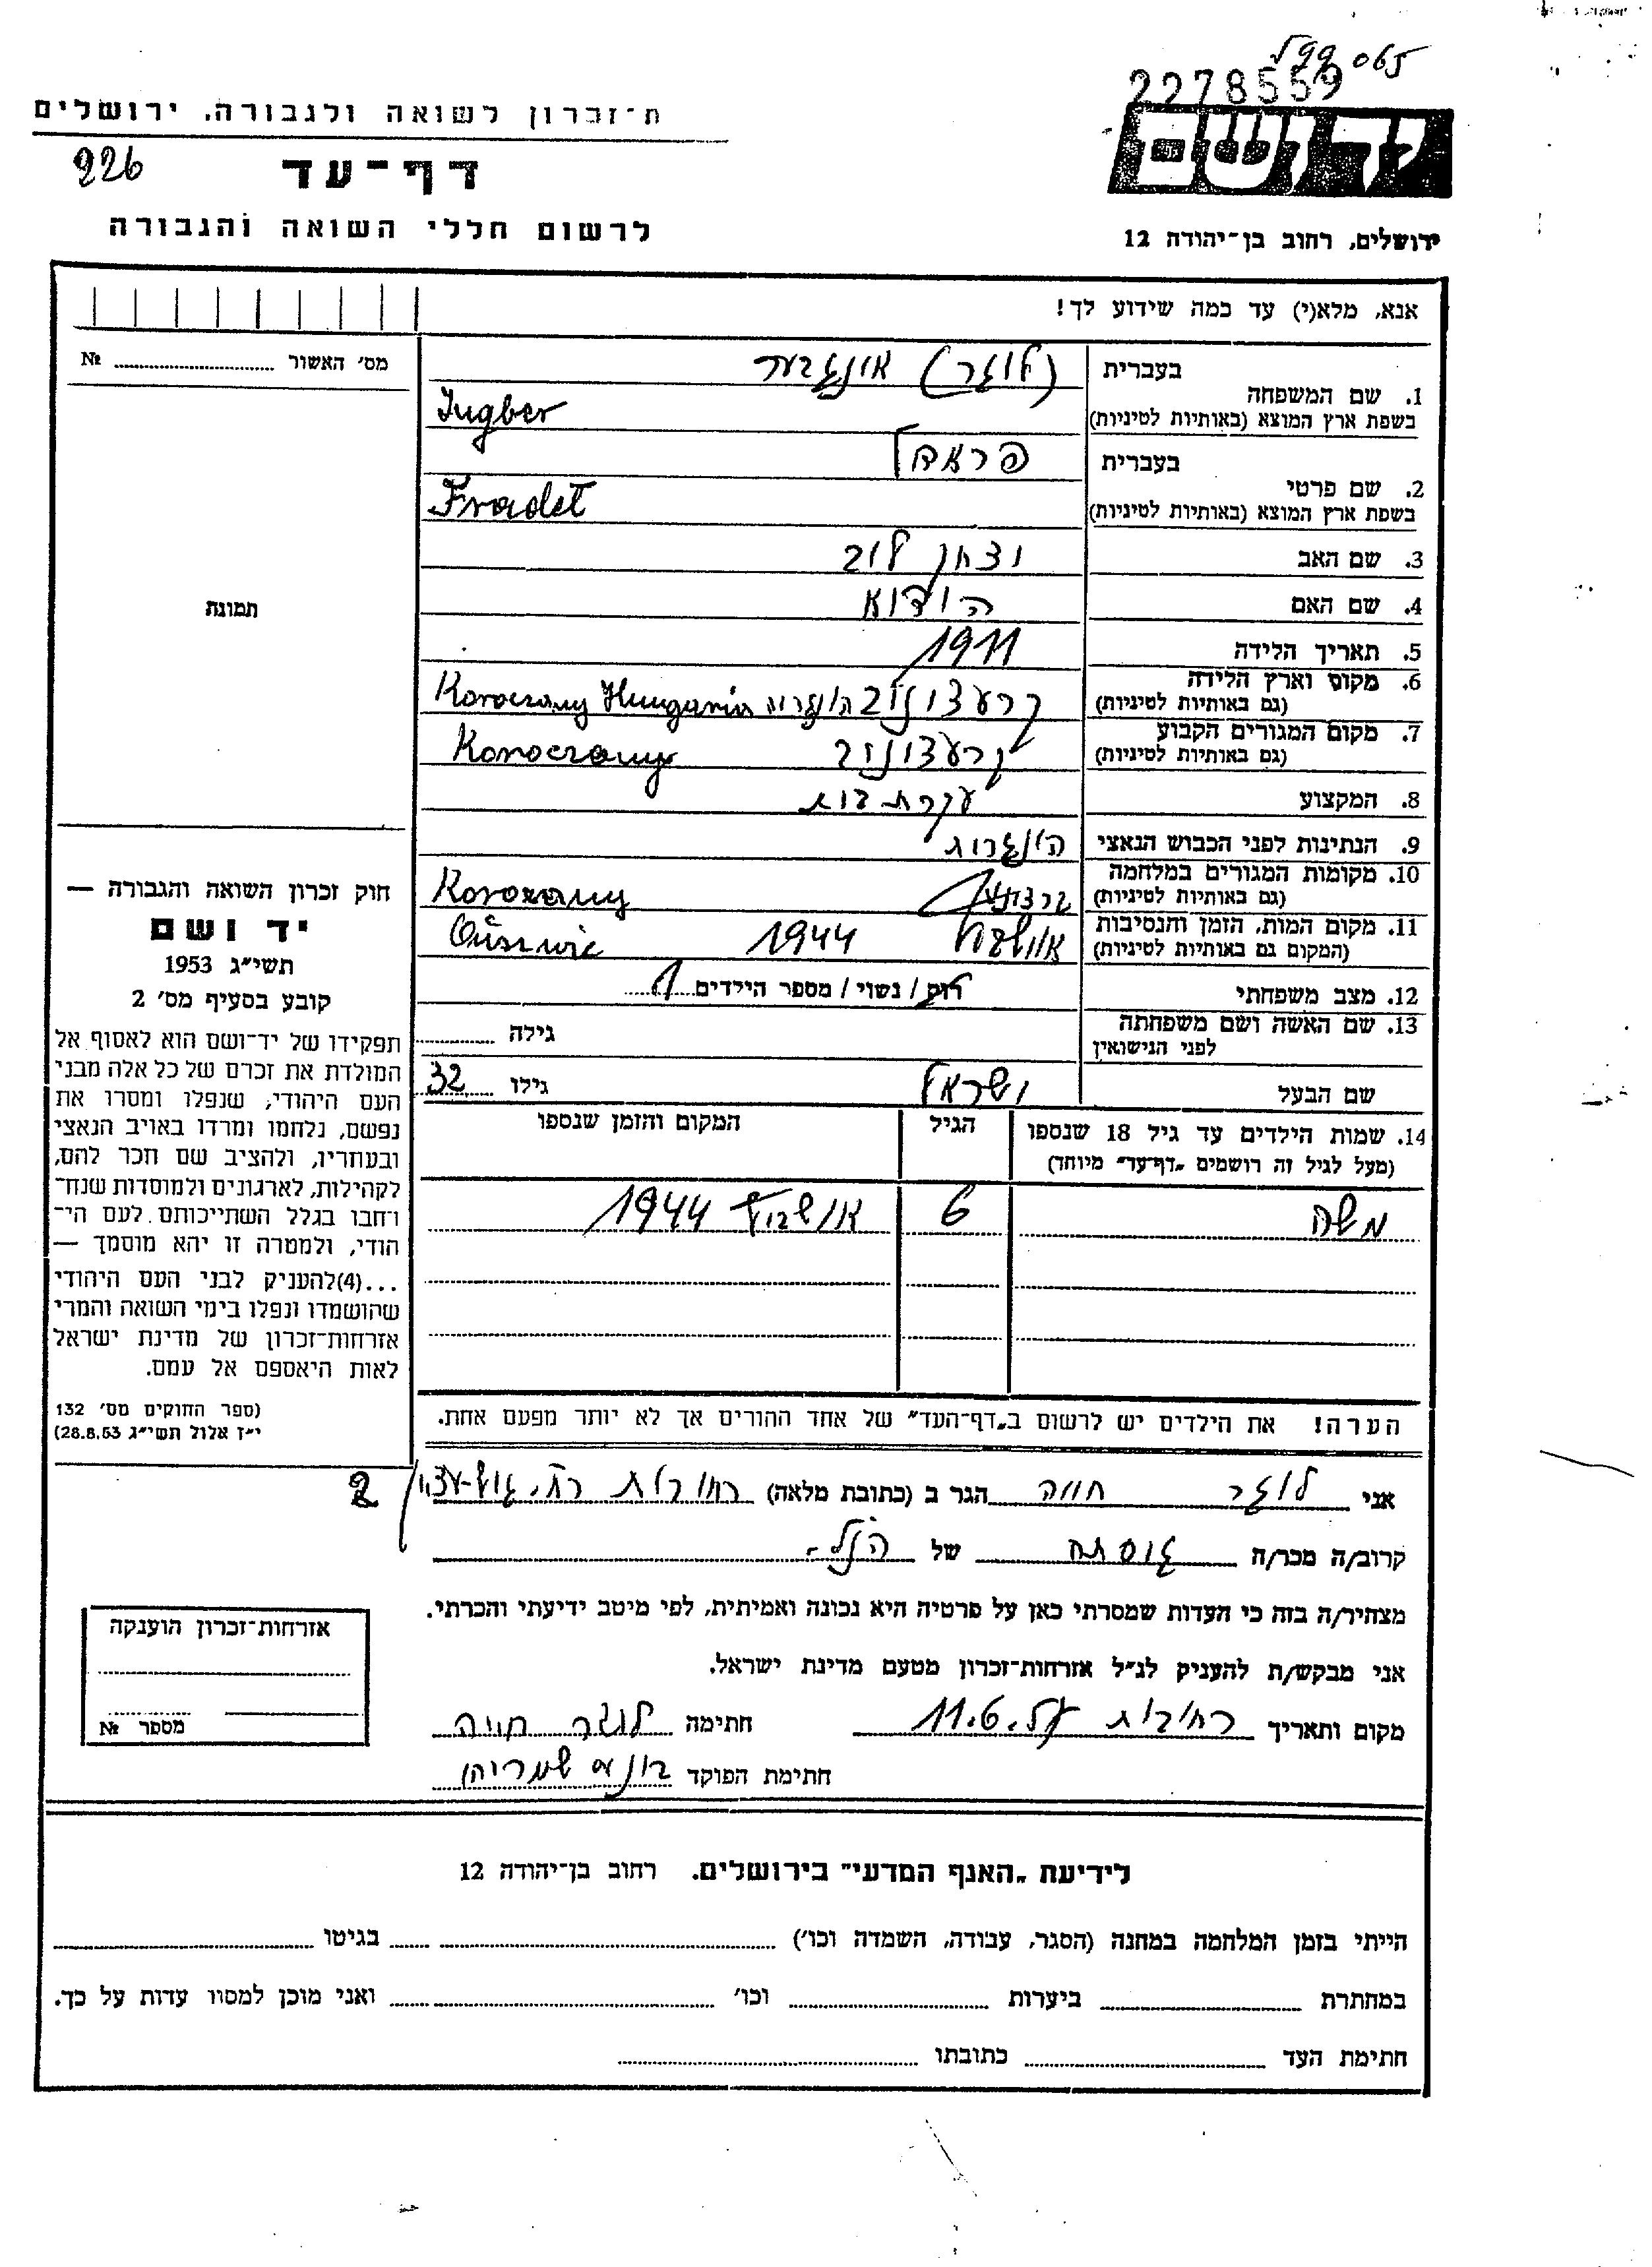 99 065
2278559
יד ושם
ירושלים, רחוב בן־יהודה 12
ת־זכרון לשואה ולגבורה, ירושלים
226
דף־עד
לרשום חללי השואה והגבורה
אנא, מלא(י) עד כמה שידוע לך!
מס׳ האשור № 
1. שם המשפחה בעברית (לוגר) אונגבער
בשפת ארץ המוצא (באותיות לטיניות) Ingber
2. שם פרטי בעברית פראדל
בשפת ארץ המוצא (באותיות לטיניות) Fradel
3. שם האב יצחק לוב
4. שם האם הודיא
5. תאריך הלידה 1911
6. מקום וארץ הלידה
(גם באותיות לטיניות) Hungaria
7. מקום המגורים הקבוע
(גם באותיות לטיניות)
8. המקצוע עקרת בית
9. הנתינות לפני הכבוש הנאצי הונגרית
10. מקומות המגורים במלחמה
(גם באותיות לטיניות)
11. מקום המות, הזמן והנסיבות 1944
(המקום גם באותיות לטיניות)
12. מצב משפחתי רוק / נשוי / מספר הילדים 1
13. שם האשה ושם משפחתה גילה
לפני הנישואין
שם הבעל ישראל גילו 32
14. שמות הילדים עד גיל 18 שנספו הגיל המקום והזמן שנספו
(מעל לגיל זה רושמים „דף־עד״ מיוחד)
משה 6 אושביץ 1944
הערה! את הילדים יש לרשום ב„דף־העד״ של אחד ההורים אך לא יותר מפעם אחת.
תמונת
חוק זכרון השואה והגבורה —
יד ושם
תשי״ג 1953
קובע בסעיף מס׳ 2
תפקידו של יד־ושם הוא לאסוף אל
המולדת את זכרם של כל אלה מבני
העם היהודי, שנפלו ומסרו את
נפשם, נלחמו ומרדו באויב הנאצי
ובעוזריו, ולהציב שם וזכר להם,
לקהילות, לארגונים ולמוסדות שנח־
רבו בגלל השתייכותם לעם הי־
הודי, ולמטרה זו יהא מוסמך —
...(4) להעניק לבני העם היהודי
שהושמדו ונפלו בימי השואה והמרי
אזרחות־זכרון של מדינת ישראל
לאות היאספם אל עמם.
(ספר החוקים מס׳ 132
י״ז אלול תשי״ג 28.8.53)
אני לוגר חווה הגר ב (כתובת מלאה) רחובות רח. גוש-עציון 2
קרוב/ה מכר/ה גיסתה של הנ״ל
מצהיר/ה בזה כי העדות שמסרתי כאן על פרטיה היא נכונה ואמיתית, לפי מיטב ידיעתי והכרתי.
אני מבקש/ת להעניק לנ״ל אזרחות־זכרון מטעם מדינת ישראל.
מקום ותאריך רחובות 11.6. חתימה לוגר חווה
חתימת הפוקד שמריהו
אזרחות־זכרון הוענקה
מספר №
לידיעת „האגף המדעי״ בירושלים. רחוב בן־יהודה 12
הייתי בזמן המלחמה במחנה (הסגר, עבודה, השמדה וכו׳) בגיטו
במחתרת ביערות וכו׳ ואני מוכן למסור עדות על כך.
חתימת העד כתובתו